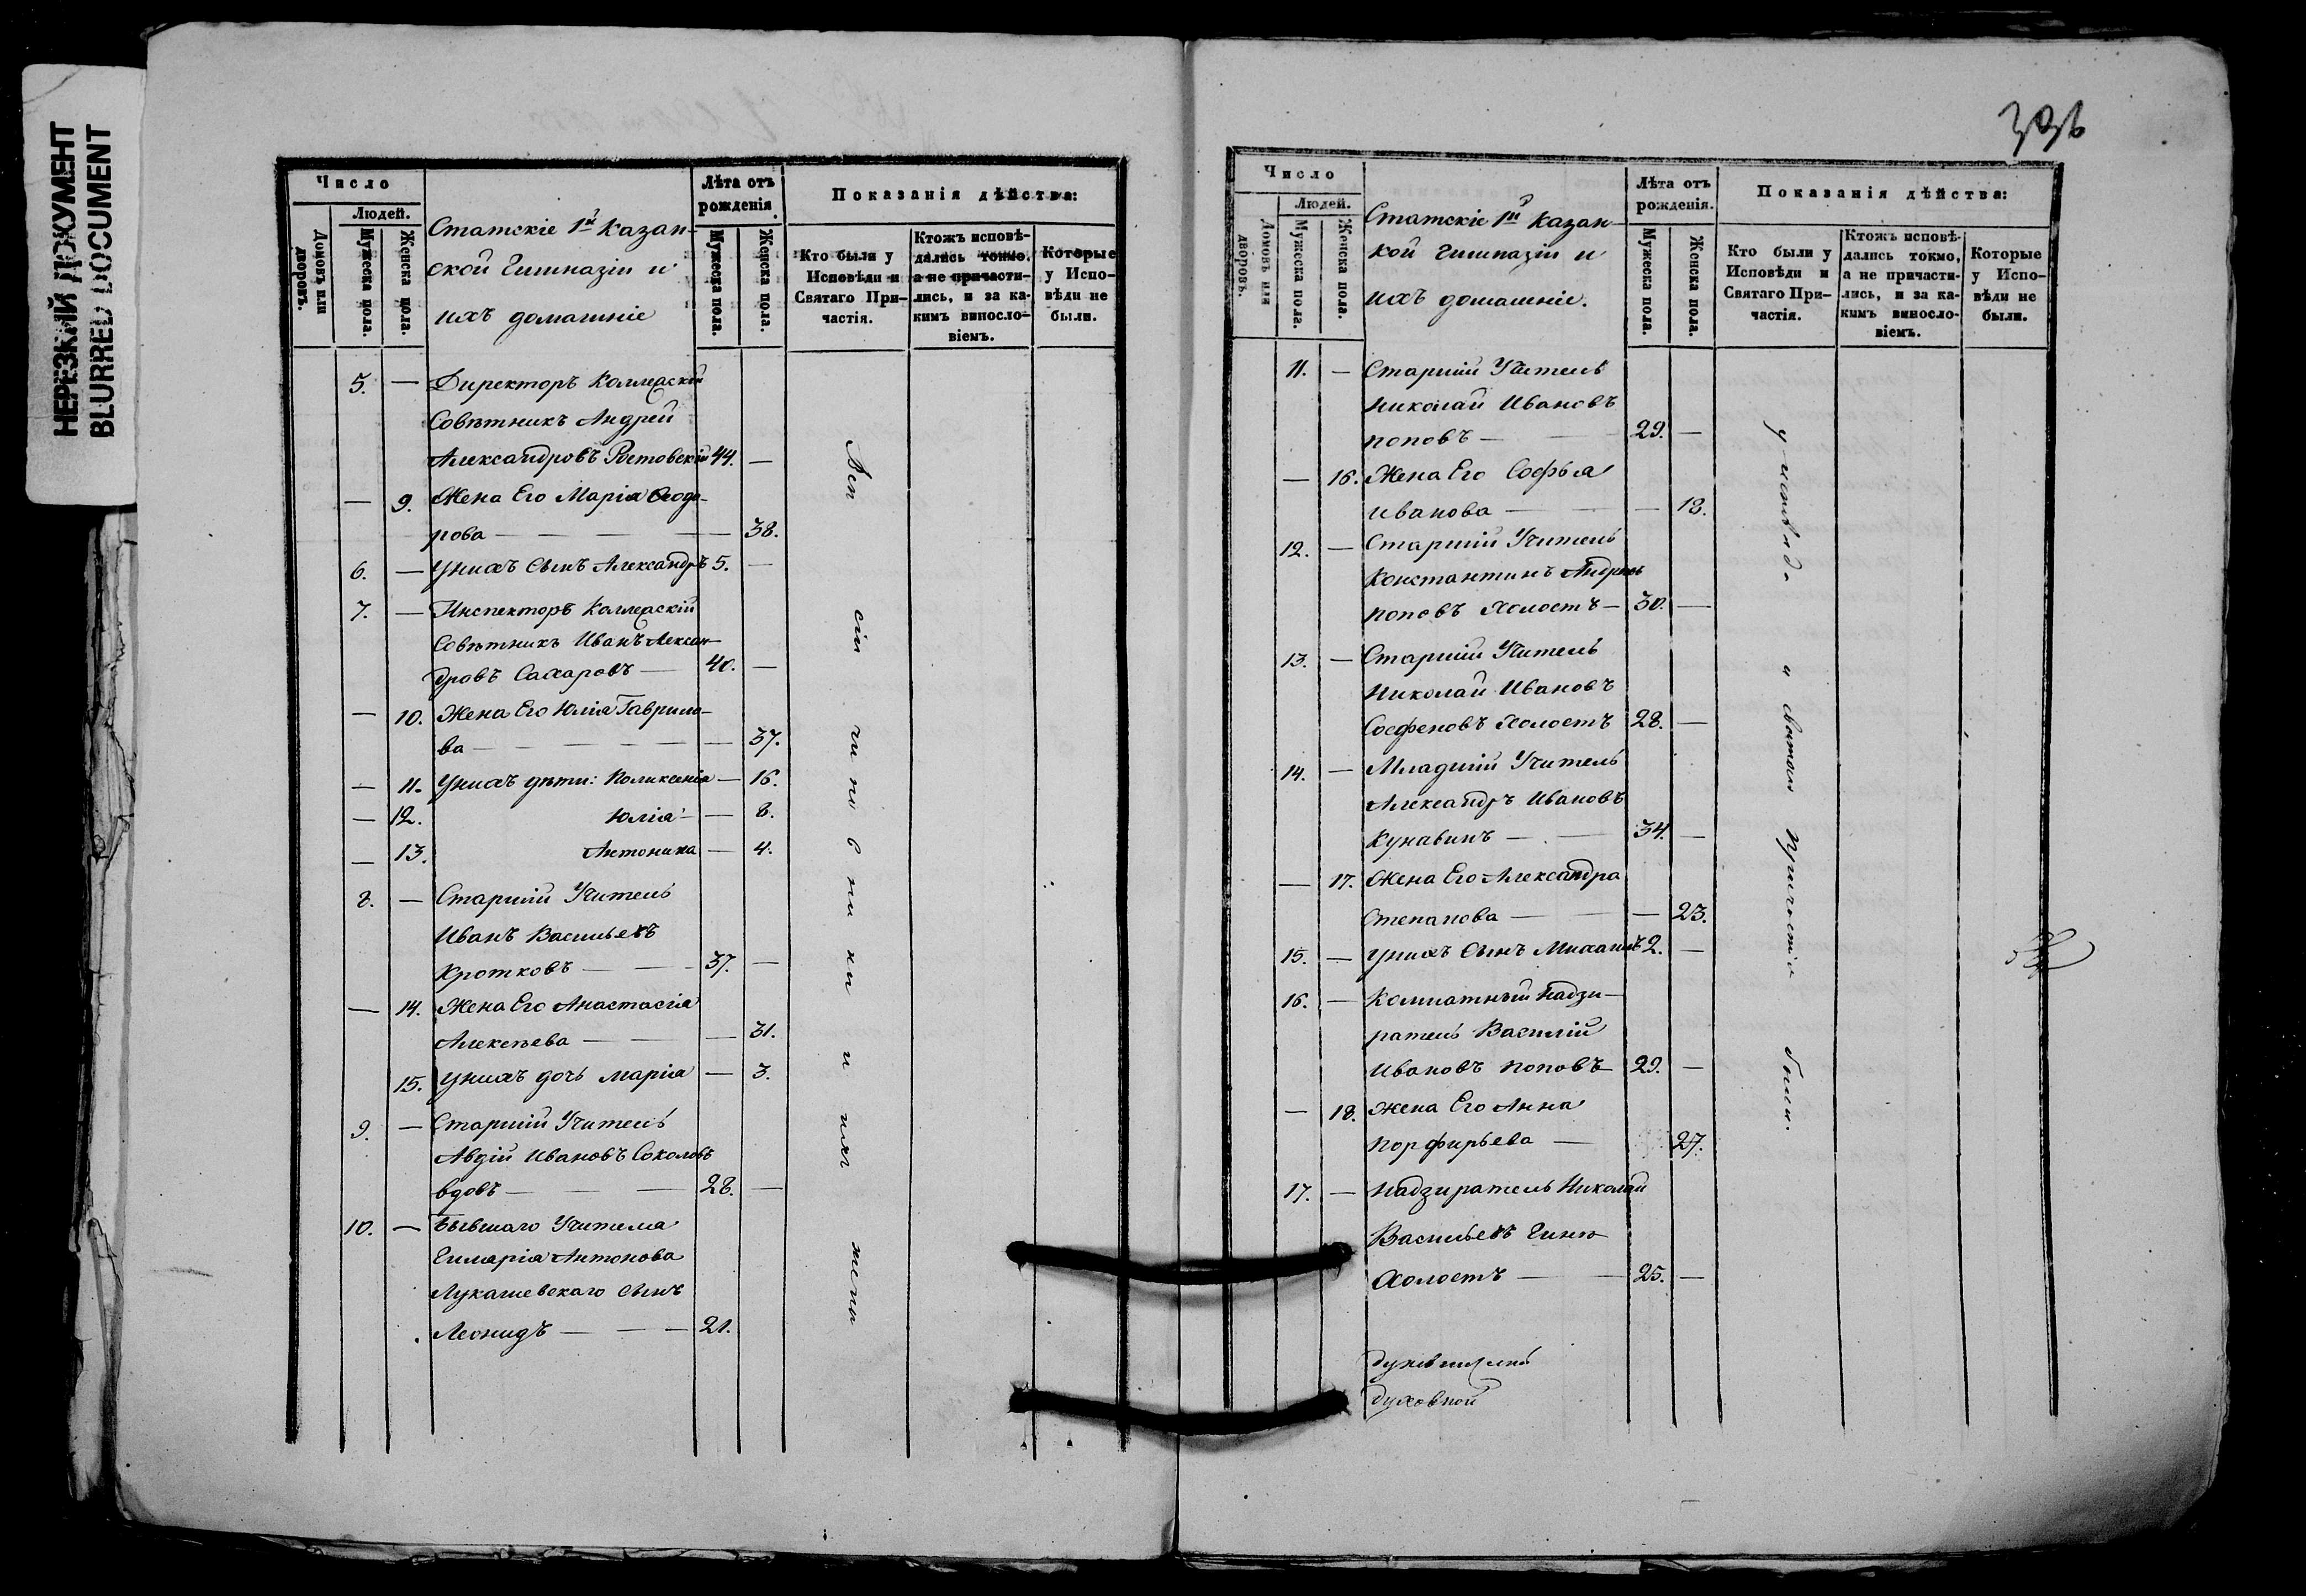 НЕРЕЗКИЙ ДОКУМЕНТ
BLURRED DOCUMENT
Число
Людей.
Домовъ или дворовъ.
Мужеска пола.
Женска пола.
Статскіе 1й Казан-
ской Гимназіи и
ихъ домашніе
Лѣта отъ рожденія.
Мужеска пола.
Женска пола.
Показанія дѣйства:
Кто были у Исповѣди и Святаго При-частія.
Ктожъ исповѣ-дались токмо, а не причасти-лись, и за ка-кимъ виносло-віемъ.
Которые у Испо-вѣди не были.
5. — Директоръ Коллежскій
Совѣтникъ Андрей
Александровъ Ростовскій 44. —
— 9. Жена Его Марія Ѳеодо-
рова — 38.
6. — У нихъ Сынъ Александръ 5. —
7. — Инспекторъ Коллежскій
Совѣтникъ Иванъ Алексан-
дровъ Сахаровъ — 40. —
— 10. Жена Его Юлія Гаврило-
ва — 37.
— 11. У нихъ дѣти: Поликсенія — 16.
— 12. Юлія — 8.
— 13. Антонина — 4.
8. — Старшій Учитель
Иванъ Васильевъ
Кротковъ — 37. —
— 14. Жена Его Анастасія
Алексѣева — 31.
15. У нихъ дочь Марія — 3.
9. — Старшій Учитель
Авдій Ивановъ Соколовъ
вдовъ — 28. —
10. — Бывшаго Учителя
Еиларія Антонова
Лукашевскаго сынъ
Леонидъ — 21.
Всѣ сіи чиновники и ихъ жены
Число
Людей.
Домовъ или дворовъ.
Мужеска пола.
Женска пола.
Статскіе 1й Казан-
кой Гимназіи и
ихъ домашніе.
Лѣта отъ рожденія.
Мужеска пола.
Женска пола.
Показанія дѣйства:
Кто были у Исповѣди и Святаго При-частія.
Ктожъ исповѣ-дались токмо, а не причасти-лись, и за ка-кимъ виносло-віемъ.
Которые у Испо-вѣди не были.
11. — Старшій Учитель
Николай Ивановъ
Поповъ — 29. —
— 16. Жена Его Софья
Иванова — 18.
12. — Старшій Учитель
Константинъ Андреевъ
Поповъ холостъ — 30. —
13. — Старшій Учитель
Николай Ивановъ
Софреновъ холостъ 28. —
14. — Младшій Учитель
Александръ Ивановъ
Кунавинъ — 34. —
— 17. Жена Его Александра
Степанова — 23.
15. — У нихъ Сынъ Михаилъ 2. —
16. — Комнатный Надзи-
ратель Василій
Ивановъ Поповъ 29. —
— 18. Жена Его Анна
Порфирьева — 27.
17. — Надзиратель Николай
Васильевъ
Холостъ — 25. —
у исповѣди и святаго Причастія были.
духовной